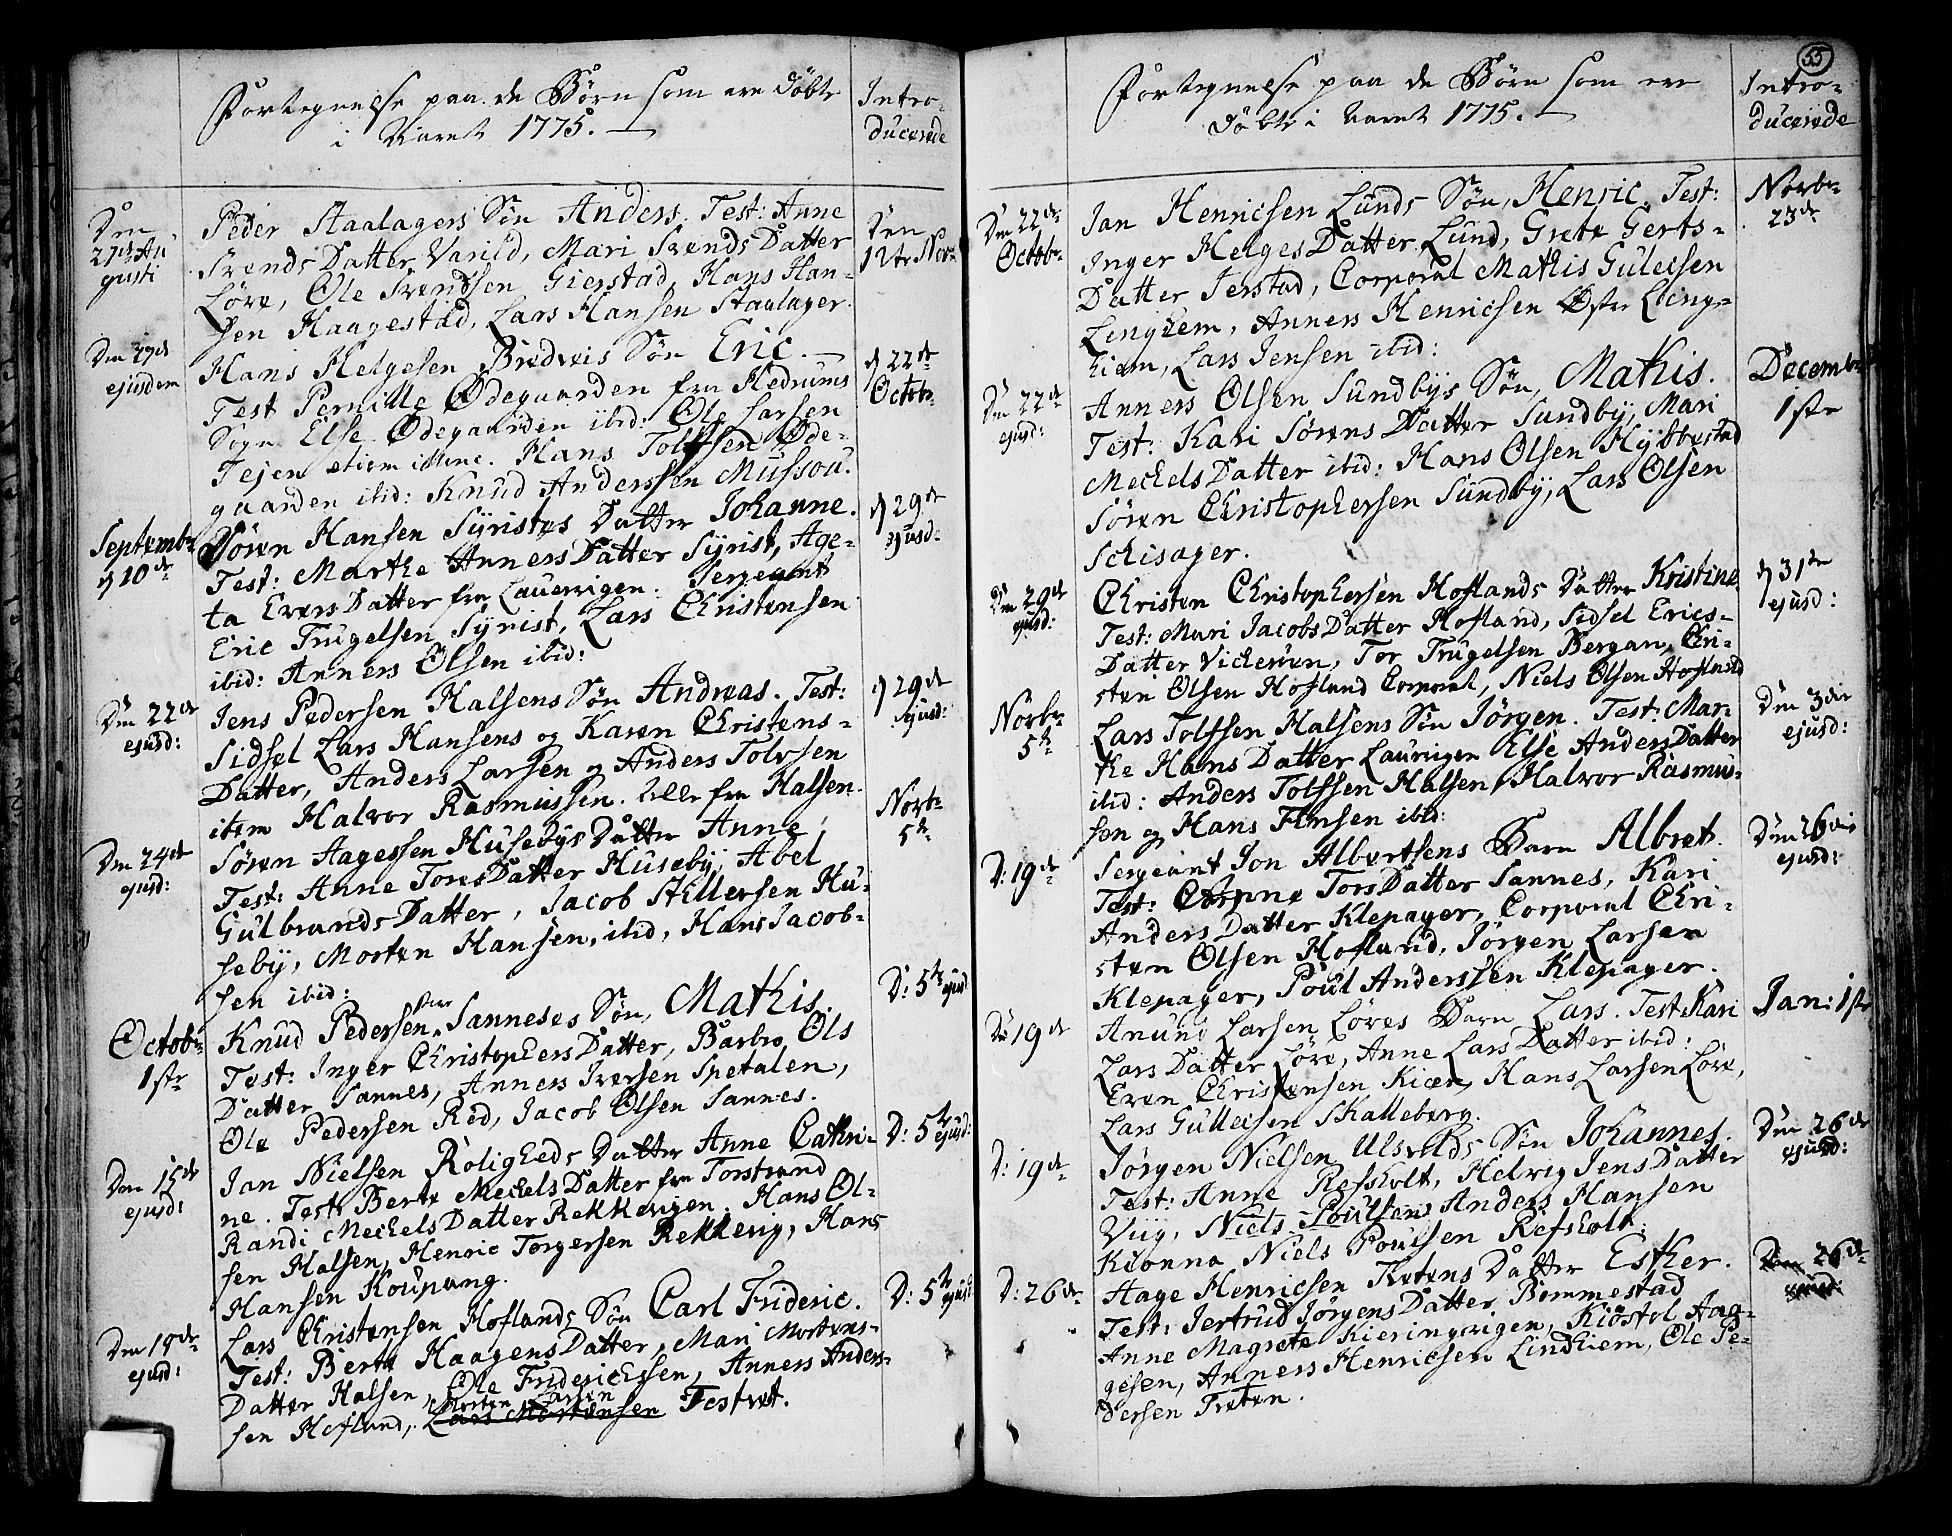 Fortegnelse paa de Børn som ere døbte
i Aaret 1775.
Intro-
ducerede
Den
27de Au-
gusti
Peder Staalagers Søn Anders. Test: Anne
Svends Datter Varild, Mari Svends Datter
Løve, Ole Svendsen Gierstad, Hans Han-
sen Haagestad, Lars Hansen Staalager.
Den
12te Nov
Den 27de
ejusdem
Hans Helgesen Bredveis Søn Eric.
Test Pernille Ødegaarden fra Hedrums
Sogn Else Ødegaarden ibid: Ole Larsen
Fejen etiem Hans Tolfsen Øde-
gaarden ibid: Knud Anderssen Mussou.
d 22de
Octobr
Septembr
d 10de
Søren Hansen Syristes Datter Johanne.
Test: Marthe Anners Datter Syrist, Age-
ta Evers Datter fra Lauervigen. Sergeant
Eric Trugelsen Syrist, Lars Christensen
ibid: Anners Olsen ibid:
d 29de
ejusd:
Den 22de
ejusd:
Jens Pedersen Halsens Søn Andreas. Test:
Sidsel Lars Hansens og Karen Christens-
Datter, Anders Larsen og Anders Tolvsen
item Halvor Rasmussen. Alle fra Halsen.
d 29de
ejusd:
Den 24de
ejusd:
Søren Aagessen Husebys Datter Anne
Test: Anne Tores Datter Huseby, Abel
Gulbrands Datter, Jacob Hillersen Hu-
seby, Morten Hansen, ibid, Hans Jacob-
sen ibid:
Novbr
5te
Octobr
1ste
Knud Pedersen Sanneses Søn, Mathis.
Test: Inger Christophers Datter, Barbro Ols
Datter Sannes, Anners Iversen Spetalen,
Ole Pedersen Rød, Jacob Olsen Sannes.
D: 5te ejusd
Den 15de
ejusd:
Jan Nielsen Roligheds Datter Anne Cathri-
ne. Test: Berte Mechels Datter fra Torstrand
Randi Mechels Datter Rekkevigen. Hans Ol-
sen Halsen, Henric Torgersen Rekkevig, Hans
Hansen Koupang.
D: 5te ejusd:
Den 18de
ejusd:
Lars Christensen Hoflands Søn Carl Frideric.
Test: Berte Haagens Datter, Mari Mortens-
Datter Halsen, Ole Fridericssen, Anners Anders-
Morten Larsen
sen Hofland, Lars Mortensen Testret.
D: 5te ejusd:
55
Fortegnelse paa de Børn som ere
døbte i Aaret 1775.
Intro-
ducerede
Den 22de
Octobr
Jan Henricsen Lunds Søn, Henric. Test:
Inger Helges Datter Lund, Grete Gerts-
Datter Jerstad, Corporal Mathis Gulecsen
Linghem, Anners Henricsen Østre Ling-
hiem, Lars Jensen ibid:
Novbr
23de
Den 22de
ejusd:
Anners Olsen Sundbys Søn, Mathis.
Test: Kari Sørens Datter Sundby, Mari
Mechels Datter ibid: Hans Olsen Hybbestad
Søren Christophersen Sundby, Lars Olsen
Schisager.
Decembr
1ste
Den 29de
ejusd:
Christen Christophersen Hoflands Datter Kristine.
Test: Mari Jacobs Datter Hofland, Sidsel Erics-
Datter Vicheren, Tor Trugelsen Bergan, Chri-
sten Olsen Hofland Corporal, Niels Olsen Hofland
d 31te
ejusd:
Novbr
5te
Lars Tolfsen Halsens Søn Jørgen. Test: Mar-
the Hans Datter Laurvigen Else Anders Datter
ibid: Anders Tolfsen Halsen, Halvor Rasmus-
sen og Hans Finsen ibid:
Den 3die
ejusd:
D: 19de
Sergeant Jon Albertsens Barn Albret.
Test: Anne Tors Datter Sannes, Kari
Anders Datter Klepager, Corporal Chri-
sten Olsen Hofland, Jørgen Larsen
Klepager, Poul Anderssen Klepager.
Den 26de
ejusd:
D: 19de
Anund Larsen Løves Barn Lars. Test: Kari
Lars Datter Løve, Anne Lars Datter ibid:
Even Christensen Kiær, Hans Larsen Løve,
Lars Gulleisen Skalleberg.
Jan: 1ste
D: 19de
Jørgen Nielsen Ulsvelds Søn Johannes.
Test: Anne Refsholt, Helvig Jens Datter
Viig, Niels Poulsens Anders Hansen
Kionna Niels Poulsen Refsholt.
Den 26de
ejusd:
D: 26de
Hage Henricsen Tvetens Datter Esther.
Test: Jertrud Jørgens Datter Bommestad
Anne Magrete Kieringvigen, Kiøstol Aag-
gesen, Anners Henricsen Lindhiem, Ole Pe-
dersen Tveten.
Den 26de
ejusd: